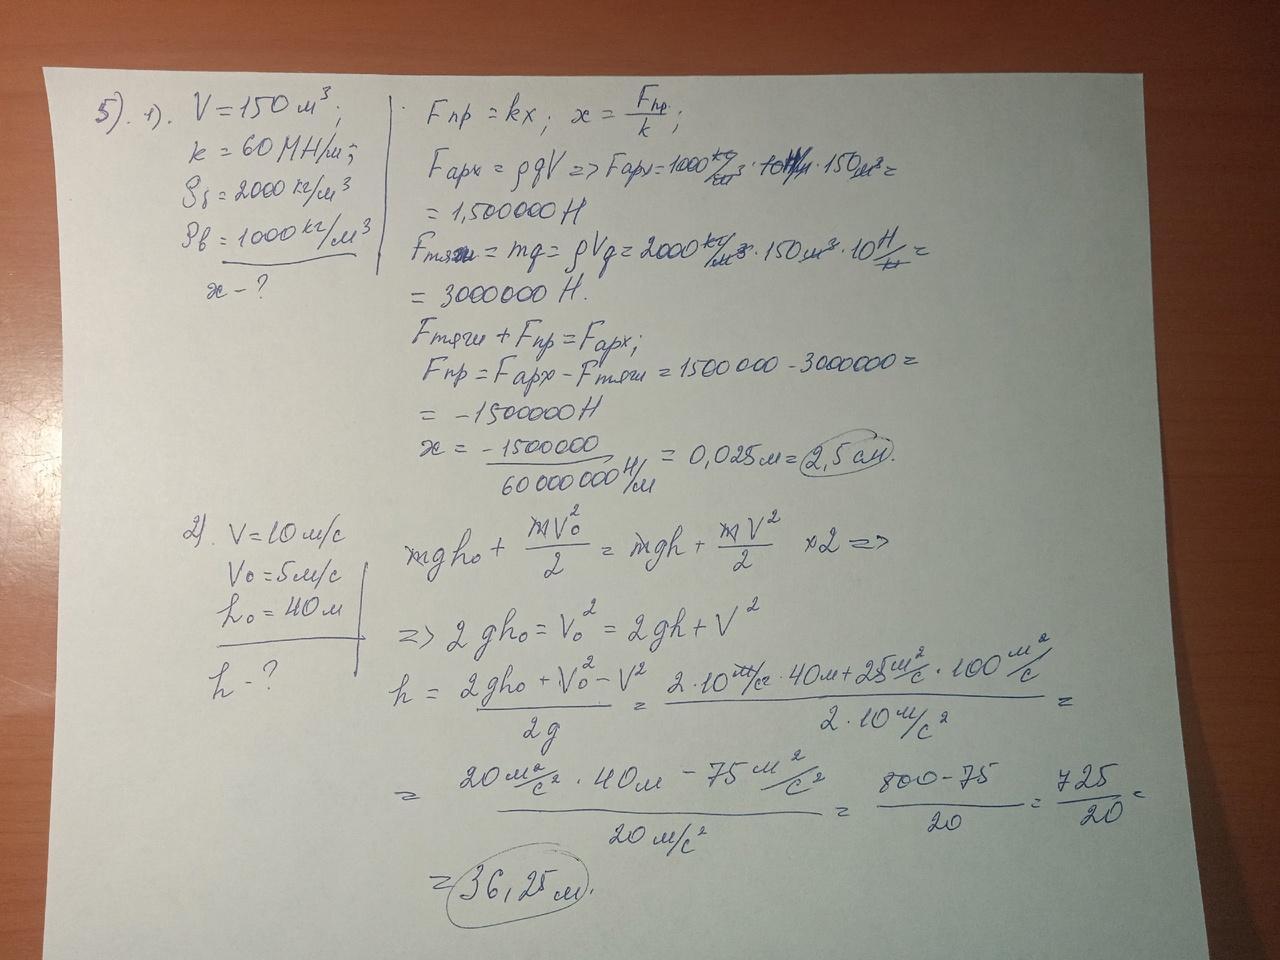 5). 1). V = 150 м³;
k = 60 МН/м;
ρб = 2000 кг/м³
ρв = 1000 кг/м³
x - ?
Fпр = kx; x = Fпр/k;
Fарх = ρgV => Fарх = 1000 кг/м³ · 10 Н/м · 150 м³ =
= 1,500000 Н
Fтяж = mg = ρVg = 2000 кг/м³ · 150 м³ · 10 Н/кг =
= 3000000 Н.
Fтяги + Fпр = Fарх;
Fпр = Fарх - Fтяги = 1500000 - 3000000 =
= -1500000 Н
x = -1500000 / 60000000 Н/м = 0,025 м = 2,5 см.
2) V = 10 м/с
V₀ = 5 м/с
h₀ = 40 м
h - ?
mgh₀ + mV₀²/2 = mgh + mV²/2 ×2 =>
=> 2gh₀ = V₀² = 2gh + V²
h = (2gh₀ + V₀² - V²)/2g = (2·10 м/с² · 40 м + 25 м²/с · 100 м²/с)/(2·10 м/с²) =
= (20 м²/с² · 40 м - 75 м²/с²)/(20 м/с²) = (800 - 75)/20 = 725/20 =
= 36,25 м.